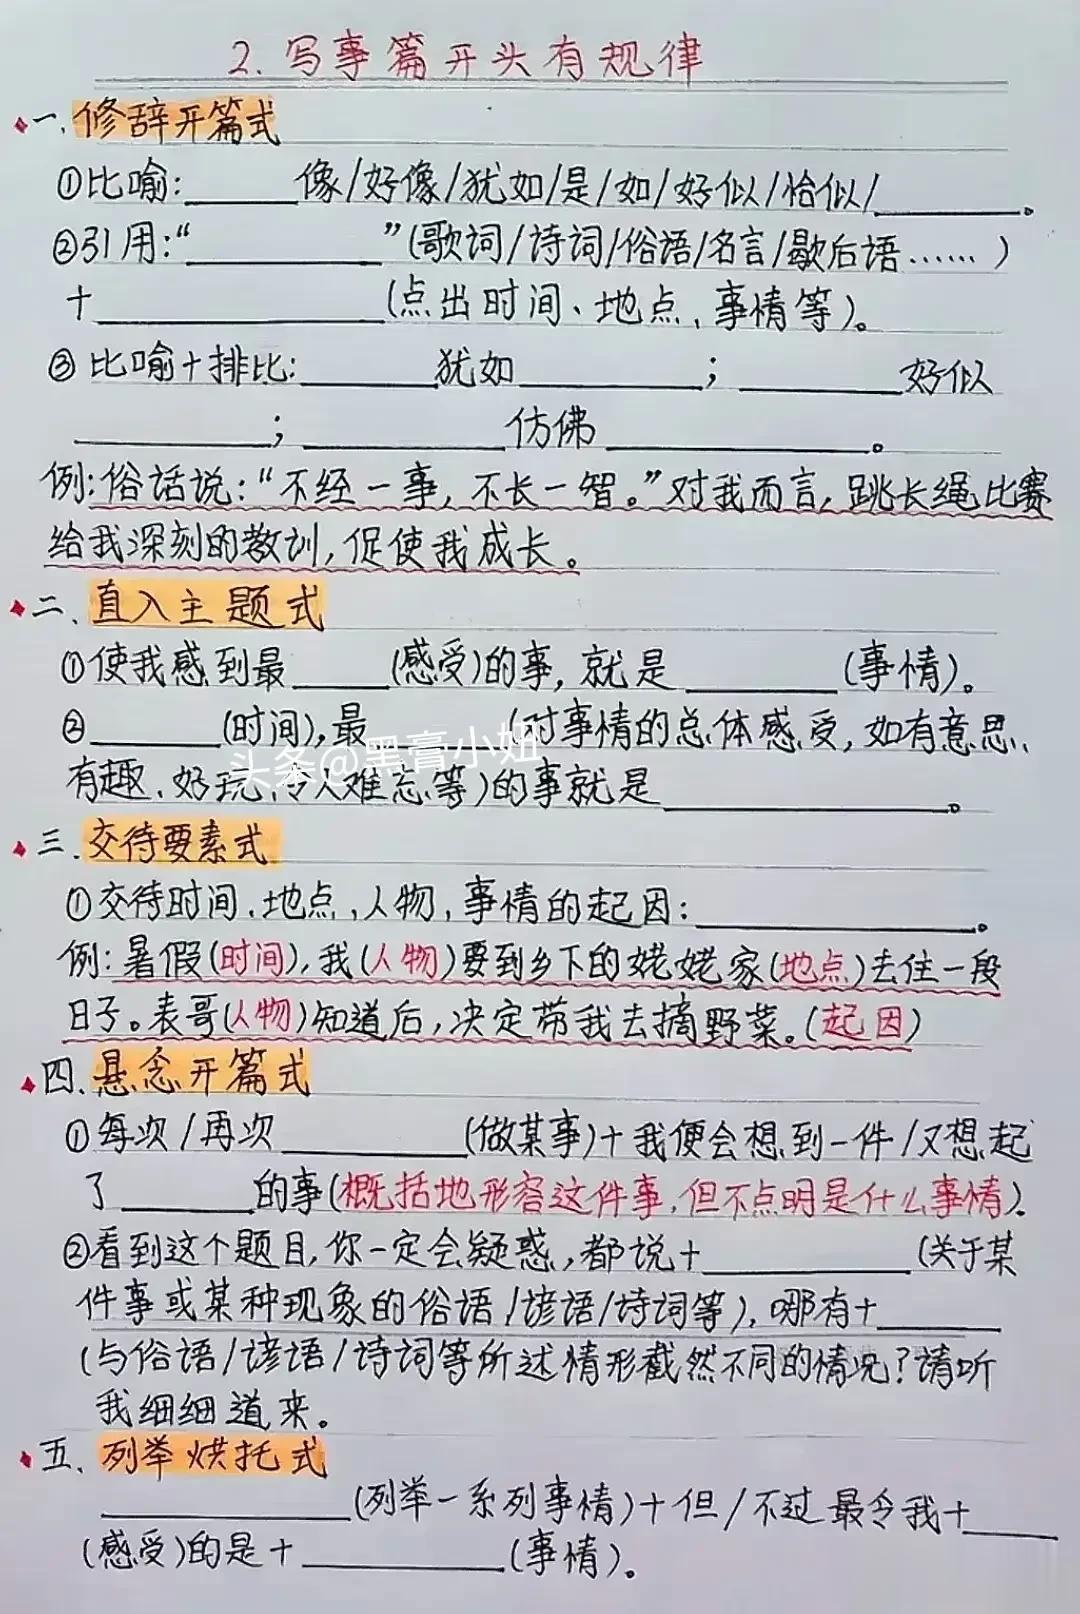 2. 写事篇开头有规律
一. 修辞开篇式
①比喻:______像/好像/犹如/是/如/好似/恰似/________。
②引用:“__________”(歌词/诗词/俗语/名言/歇后语……)
+______________(点出时间、地点、事情等)。
③比喻+排比:_______犹如_________;________好似
__________;__________仿佛_____________。
例:俗话说:“不经一事,不长一智。”对我而言,跳长绳比赛
给我深刻的教训,促使我成长。
二、直入主题式
①使我感到最_____(感受)的事,就是_______(事情)。
②______(时间),最_______(对事情的总体感受,如有意思、
有趣、好玩、令人难忘等)的事就是______________。
头条@黑膏小妞
三.交待要素式
①交待时间、地点、人物,事情的起因:______________。
例:暑假(时间),我(人物)要到乡下的姥姥家(地点)去住一段
日子。表哥(人物)知道后,决定带我去摘野菜。(起因)
四.悬念开篇式
①每次/再次_________(做某事)+我便会想到一件/又想起
了______的事(概括地形容这件事,但不点明是什么事情)。
②看到这个题目,你一定会疑惑,都说+__________(关于某
件事或某种现象的俗语/谚语/诗词等),哪有+______
(与俗语/谚语/诗词等所述情形截然不同的情况?请听
我细细道来。
五.列举烘托式
____________(列举一系列事情)+但/不过最令我+____
(感受)的是+__________(事情)。